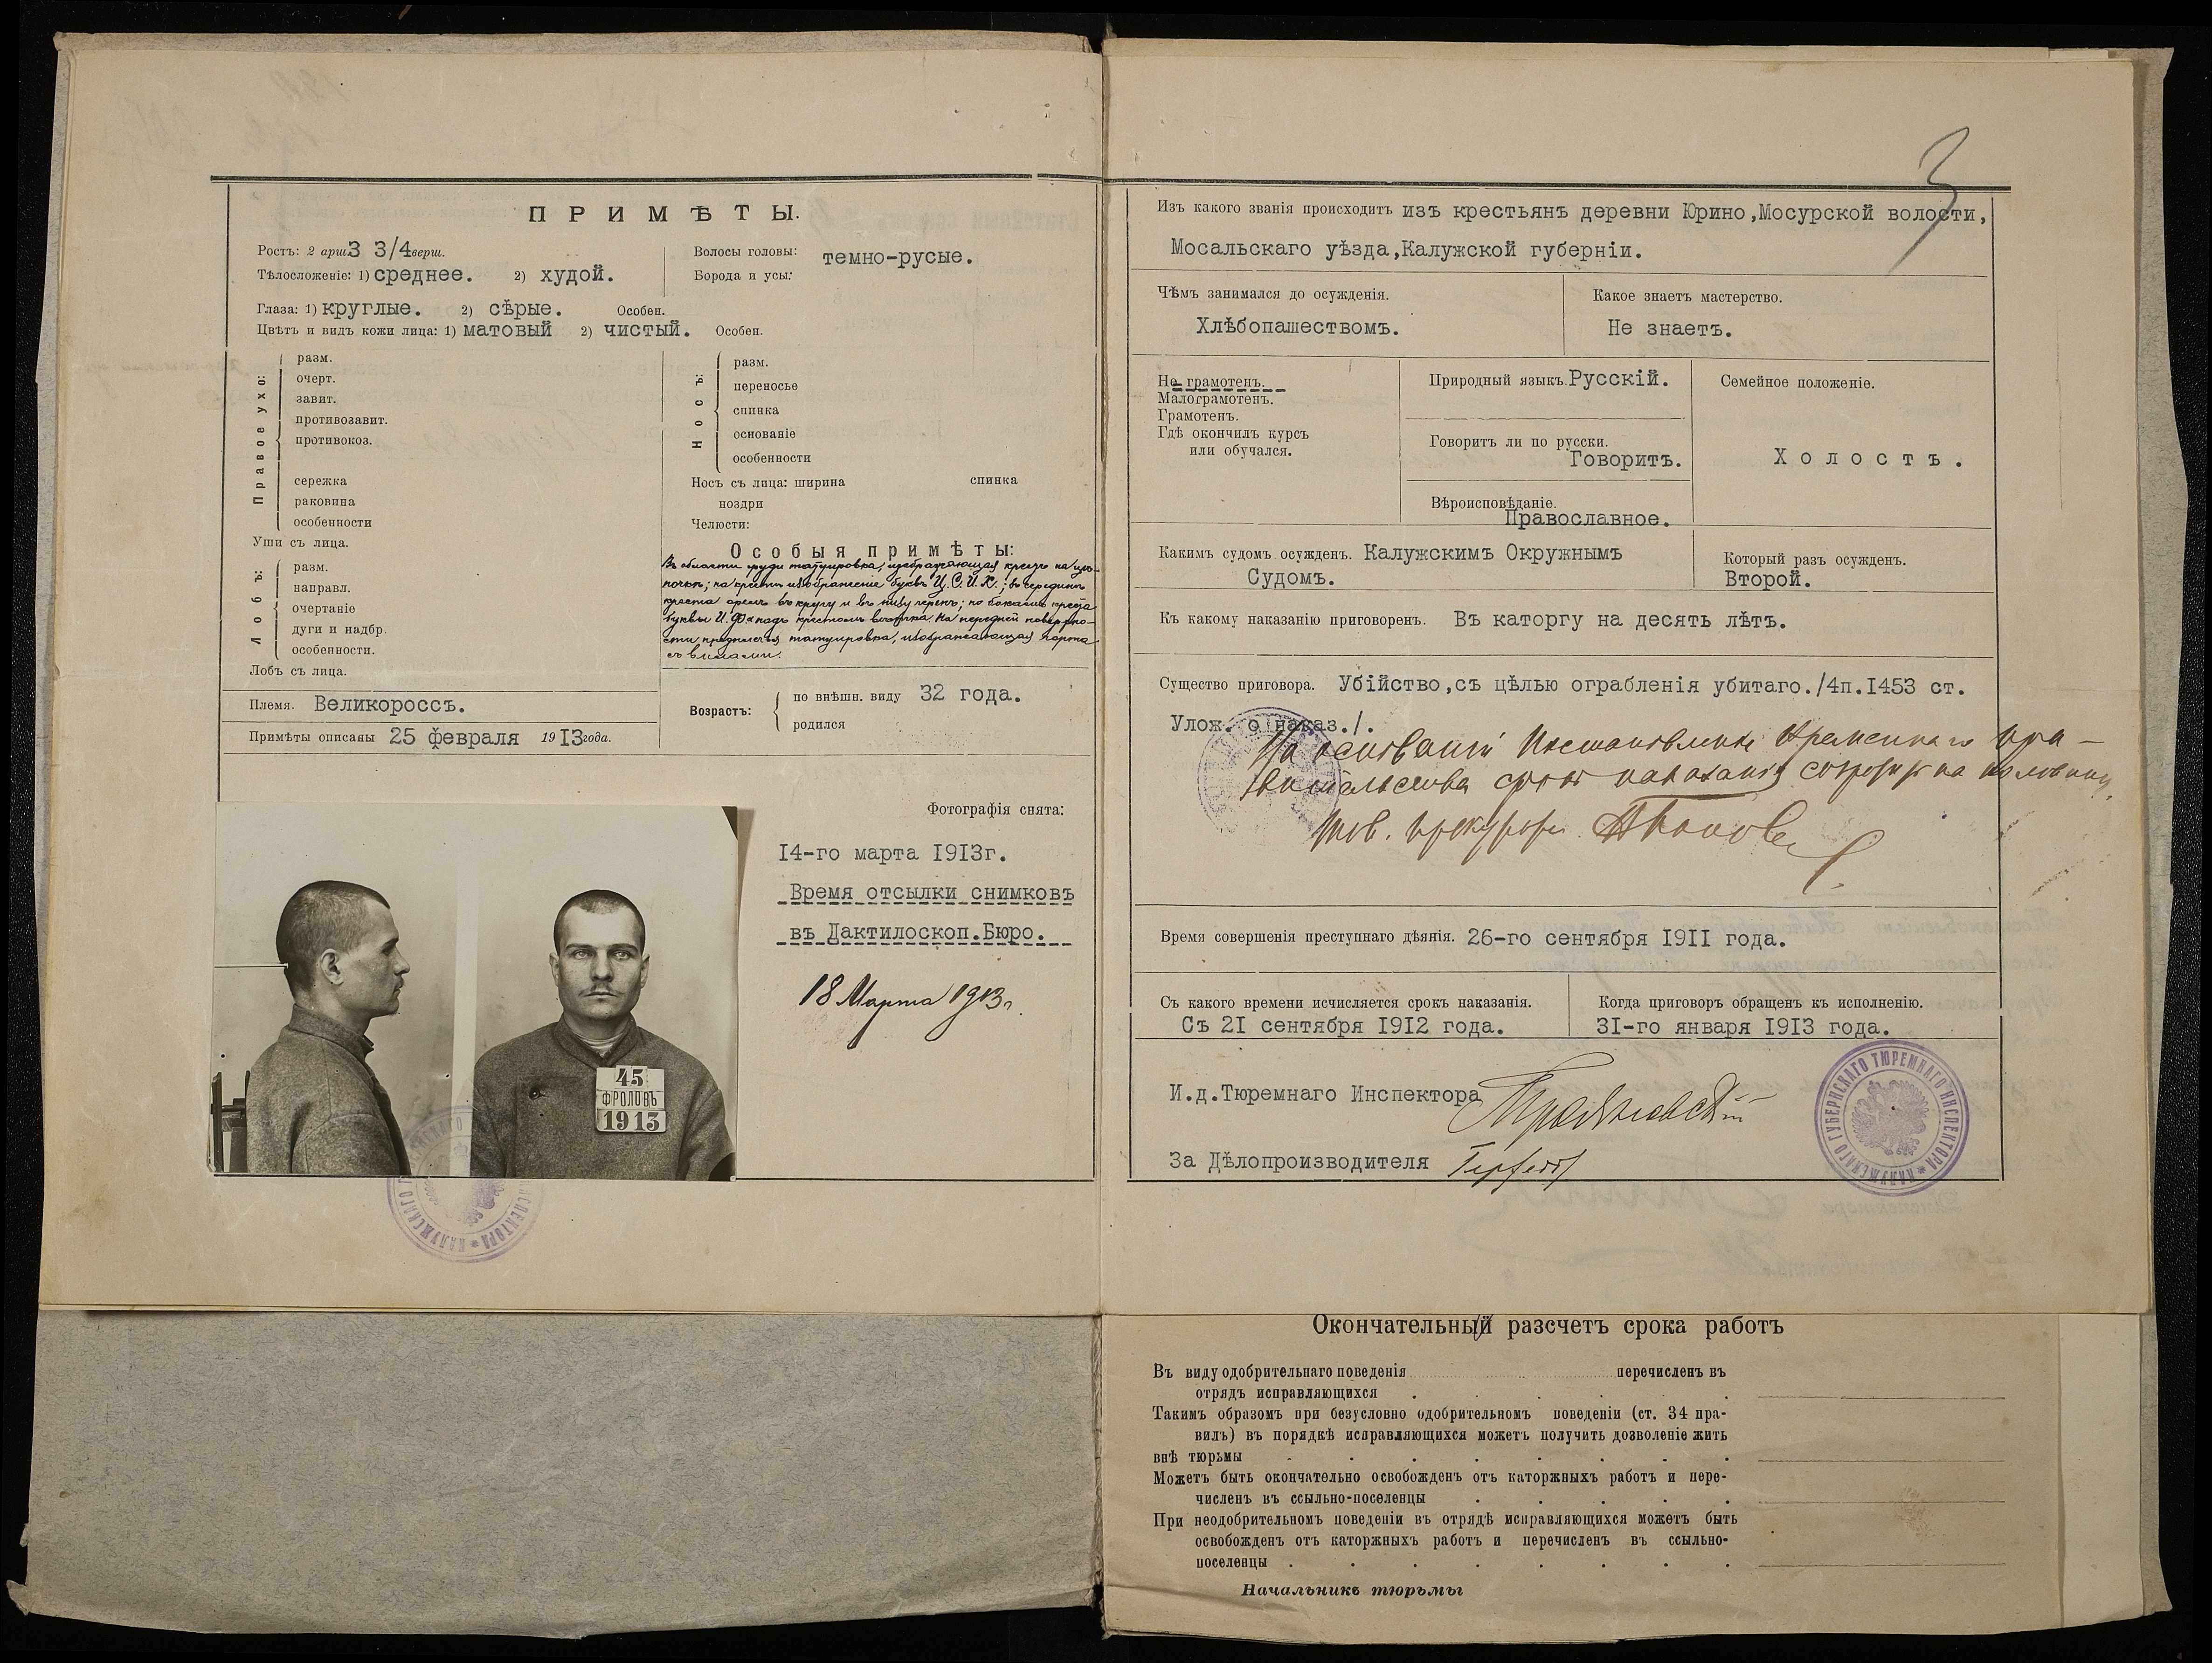 ПРИМѢТЫ.
Ростъ: 2 арш. 3 3/4 верш.
Тѣлосложеніе: 1) среднее. 2) худой.
Волосы головы: темно-русые.
Борода и усы:
Глаза: 1) круглые. 2) сѣрые. Особен.
Цвѣтъ и видъ кожи лица: 1) матовый 2) чистый. Особен.
Правое ухо:
разм.
очерт.
завит.
противозавит.
противокоз.
сережка
раковина
особенности
Уши съ лица.
Лобъ:
разм.
направл.
очертаніе
дуги и надбр.
особенности.
Лобъ съ лица.
Носъ:
разм.
переносье
спинка
основаніе
особенности
Носъ съ лица: ширина спинка
ноздри
Челюсти:
Особыя примѣты:
Въ области груди татуировка, изображающая крестъ на цѣ-
почкѣ; на крестѣ изображеніе буквъ И.С.И.Х.; въ серединѣ
креста орелъ въ кругу и въ низу черепъ; по бокамъ креста
буквы И.Ф. надъ крестомъ На передней поверхно-
сти предплечья татуировка, изображающая чорта
съ вилами.
Племя. Великороссъ.
Примѣты описаны 25 февраля 1913 года.
Возрастъ:
по внѣшн. виду 32 года.
родился
Фотографія снята:
14-го марта 1913г.
Время отсылки снимковъ
въ Дактилоскоп.Бюро.
18 Марта 1913г.
45
ФРОЛОВЪ
1913
3
Изъ какого званія происходитъ изъ крестьянъ деревни Юрино,Мосурской волости,
Мосальскаго уѣзда,Калужской губерніи.
Чѣмъ занимался до осужденія.
Хлѣбопашествомъ.
Какое знаетъ мастерство.
Не знаетъ.
Не грамотенъ.
Малограмотенъ.
Грамотенъ.
Гдѣ окончилъ курсъ
или обучался.
Природный языкъ. Русскій.
Говоритъ ли по русски.
Говоритъ.
Вѣроисповѣданіе.
Православное.
Семейное положеніе.
Холостъ.
Какимъ судомъ осужденъ. Калужскимъ Окружнымъ
Судомъ.
Который разъ осужденъ.
Второй.
Къ какому наказанію приговоренъ. Въ каторгу на десять лѣтъ.
Существо приговора. Убійство,съ цѣлью ограбленія убитаго./4п.1453 ст.
Улож. о наказ./.
На основаніи Постановленія Временнаго Пра-
вительства срокъ наказанія сокращенъ на половину.
Тов. прокурора
Время совершенія преступнаго дѣянія. 26-го сентября 1911 года.
Съ какого времени исчисляется срокъ наказанія.
Съ 21 сентября 1912 года.
Когда приговоръ обращенъ къ исполненію.
31-го января 1913 года.
И.д.Тюремнаго Инспектора
За Дѣлопроизводителя
КАЛУЖСКАГО ГУБЕРНСКАГО ТЮРЕМНАГО ИНСПЕКТОРА
Окончательный разсчетъ срока работъ
Въ виду одобрительнаго поведенія перечисленъ въ
отрядъ исправляющихся
Такимъ образомъ при безусловно одобрительномъ поведеніи (ст. 34 пра-
вилъ) въ порядкѣ исправляющихся можетъ получить дозволеніе жить
внѣ тюрьмы
Можетъ быть окончательно освобожденъ отъ каторжныхъ работъ и пере-
численъ въ ссыльно-поселенцы
При неодобрительномъ поведеніи въ отрядѣ исправляющихся можетъ быть
освобожденъ отъ каторжныхъ работъ и перечисленъ въ ссыльно-
поселенцы
Начальникъ тюрьмы